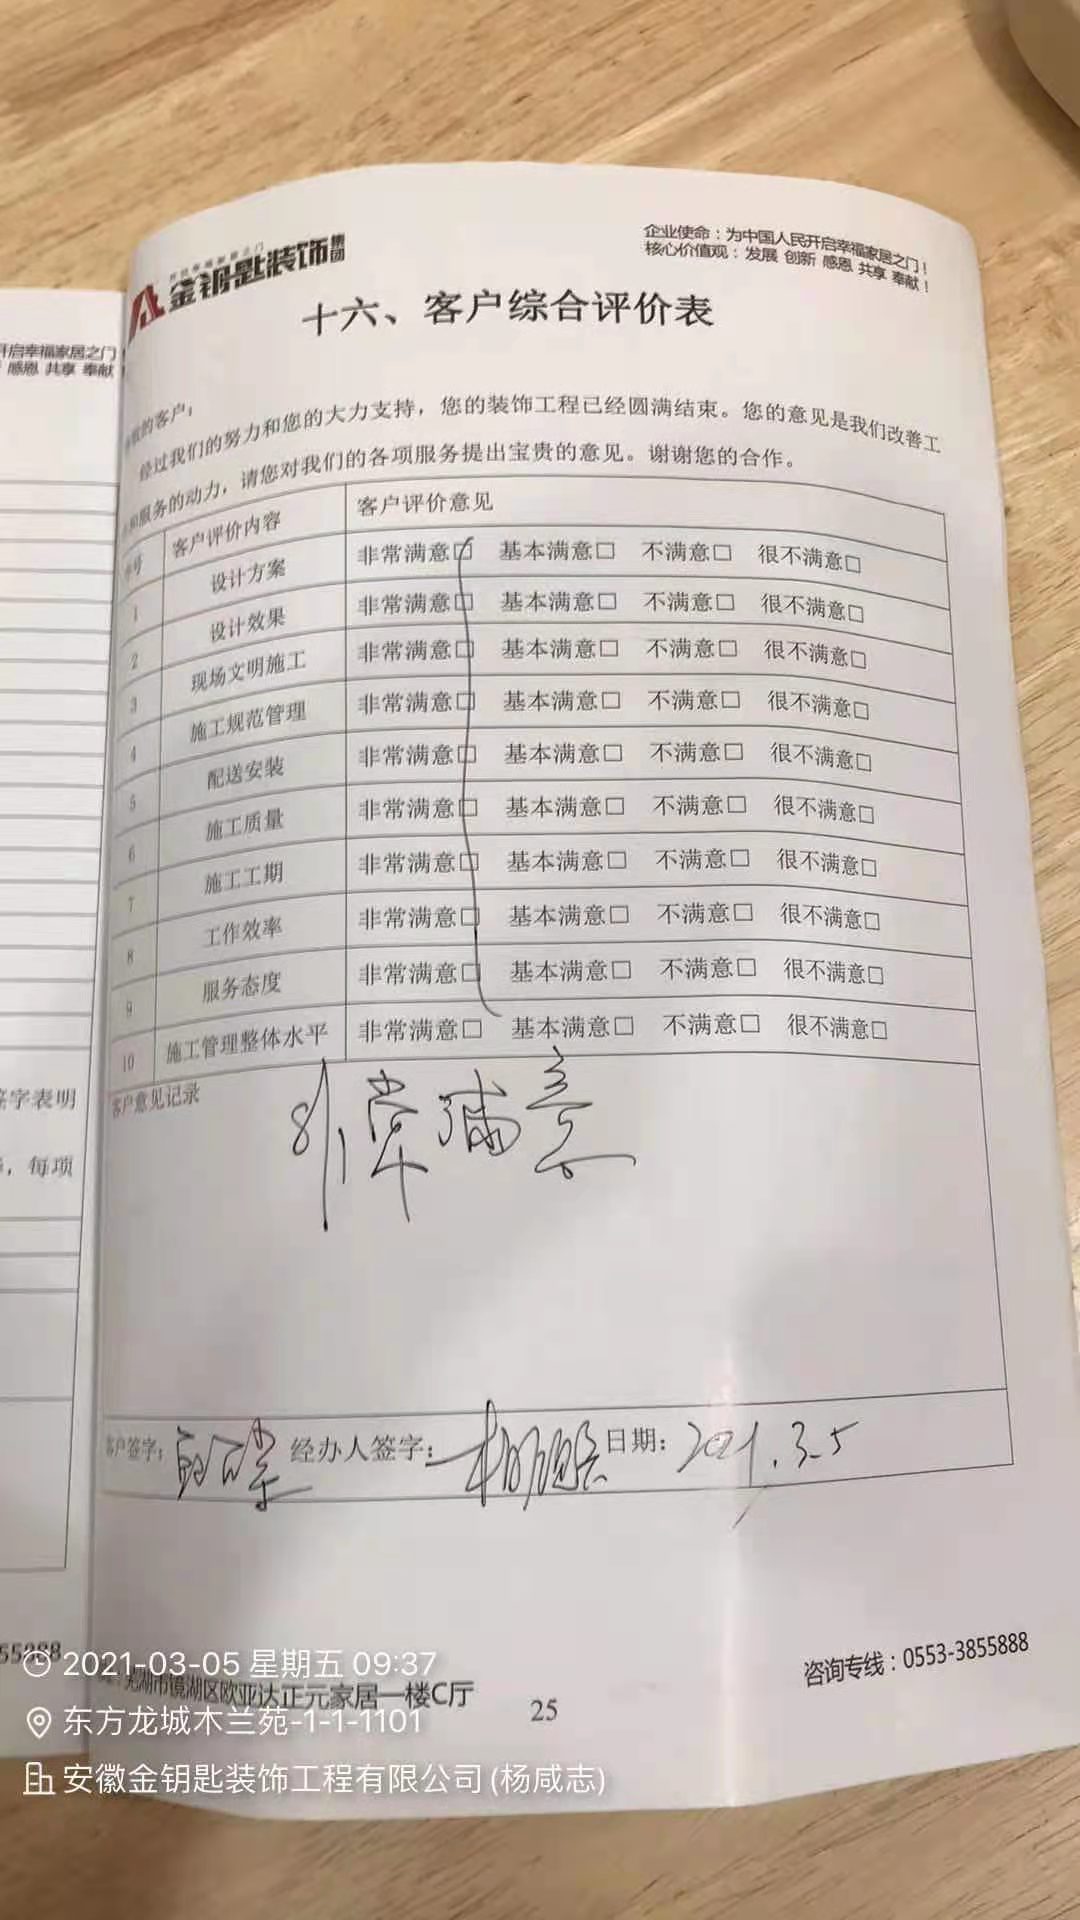 金钥匙装饰集团
企业使命：为中国人民开启幸福家居之门！
核心价值观：发展 创新 感恩 共享 奉献！
十六、客户综合评价表
的客户：
经过我们的努力和您的大力支持，您的装饰工程已经圆满结束。您的意见是我们改善工
和服务的动力，请您对我们的各项服务提出宝贵的意见。谢谢您的合作。
号 客户评价内容 客户评价意见
1 设计方案 非常满意□ 基本满意□ 不满意□ 很不满意□
2 设计效果 非常满意□ 基本满意□ 不满意□ 很不满意□
3 现场文明施工 非常满意□ 基本满意□ 不满意□ 很不满意□
4 施工规范管理 非常满意□ 基本满意□ 不满意□ 很不满意□
5 配送安装 非常满意□ 基本满意□ 不满意□ 很不满意□
6 施工质量 非常满意□ 基本满意□ 不满意□ 很不满意□
7 施工工期 非常满意□ 基本满意□ 不满意□ 很不满意□
8 工作效率 非常满意□ 基本满意□ 不满意□ 很不满意□
9 服务态度 非常满意□ 基本满意□ 不满意□ 很不满意□
10 施工管理整体水平 非常满意□ 基本满意□ 不满意□ 很不满意□
客户意见记录
非常满意
客户签字： 经办人签字： 日期：2021.3.5
开启幸福家居之门
感恩 共享 奉献
签字表明
，每项
55888
芜湖市镜湖区欧亚达正元家居一楼C厅
25
咨询专线：0553-3855888
2021-03-05 星期五 09:37
东方龙城木兰苑-1-1-1101
安徽金钥匙装饰工程有限公司(杨咸志)